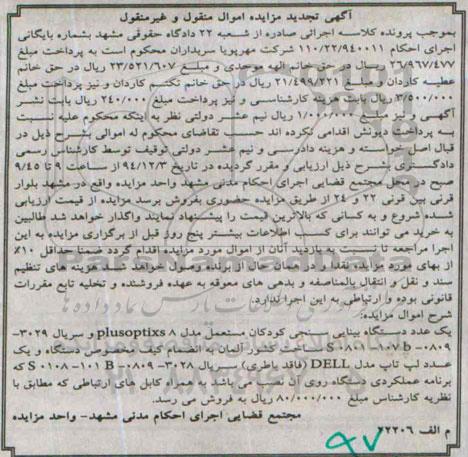 آگهی تجدید مزایده اموال منقول و غیرمنقول
بموجب پرونده کلاسه اجرائی صادره از شعبه ۲۲ دادگاه حقوقی مشهد بشماره بایگانی
اجرای احکام ۱۱۰/۲۲/۹۴۰۰۱۱ شرکت مهرپویا سربداران محکوم است به پرداخت مبلغ
۲۶/۹۶۷/۴۷۷ ریال در حق خانم الهه موحدی و مبلغ ۲۳/۵۲۱/۶۰۷ ریال در حق خانم
عطیه کاردان و مبلغ ۲۱/۴۹۹/۲۲۱ ریال در حق خانم تکتم کاردان و نیز پرداخت مبلغ
۳/۵۰۰/۰۰۰ ریال بابت هزینه کارشناسی و نیز پرداخت مبلغ ۲۴۰/۰۰۰ ریال بابت نشر
آگهی و نیز مبلغ ۱/۰۰۰/۰۰۰ ریال نیم عشر دولتی نظر به اینکه محکوم علیه نسبت
به پرداخت دیونش اقدامی نکرده اند حسب تقاضای محکوم له اموالی بشرح ذیل در
قبال اصل خواسته و هزینه دادرسی و نیم عشر دولتی توقیف توسط کارشناس رسمی
دادگستری بشرح ذیل ارزیابی و مقرر گردیده در تاریخ ۹۴/۱۲/۳ از ساعت ۹ تا ۹/۴۵
صبح در محل مجتمع قضایی اجرای احکام مدنی مشهد واحد مزایده واقع در مشهد بلوار
قرنی بین قرنی ۲۲ و ۲۴ از طریق مزایده حضوری بفروش برسد مزایده از قیمت ارزیابی
شده شروع و به کسانی که بالاترین قیمت را پیشنهاد نمایند واگذار خواهد شد طالبین
به خرید می توانند برای کسب اطلاعات بیشتر پنج روز قبل از برگزاری مزایده به این
اجرا مراجعه تا نسبت به بازدید آنان از اموال مورد مزایده اقدام گردد ضمنا حداقل ۱۰٪
از بهای مورد مزایده نقدا و در همان حال از برنده وصول خواهد شد هزینه های تنظیم
سند و نقل و انتقال بالمناصفه و بدهی های معوقه به عهده فروشنده و تخلیه تابع مقررات
قانونی بوده و ارتباطی به این اجرا ندارد.
شرح اموال مورد مزایده:
یک عدد دستگاه بینایی سنجی کودکان مستعمل مدل plusoptixs ۸ و سریال ۳۰۲۹-
۰۸۰۹-b ۱۰۷-۰۱۰۸-S ساخت کشور آلمان به انضمام کیف مخصوص دستگاه و یک
عدد لپ تاپ مدل DELL (فاقد باطری) سریال ۳۰۲۸-۰۸۰۹-B ۱۰۱-۰۱۰۸-S که
برنامه عملکردی دستگاه روی آن نصب می باشد به همراه کابل های ارتباطی که مطابق با
نظریه کارشناس مبلغ ۸۰/۰۰۰/۰۰۰ ریال به فروش می رسد.
مجتمع قضایی اجرای احکام مدنی مشهد- واحد مزایده
م الف ۴۲۲۰۶
۹۷
ParsNamadData